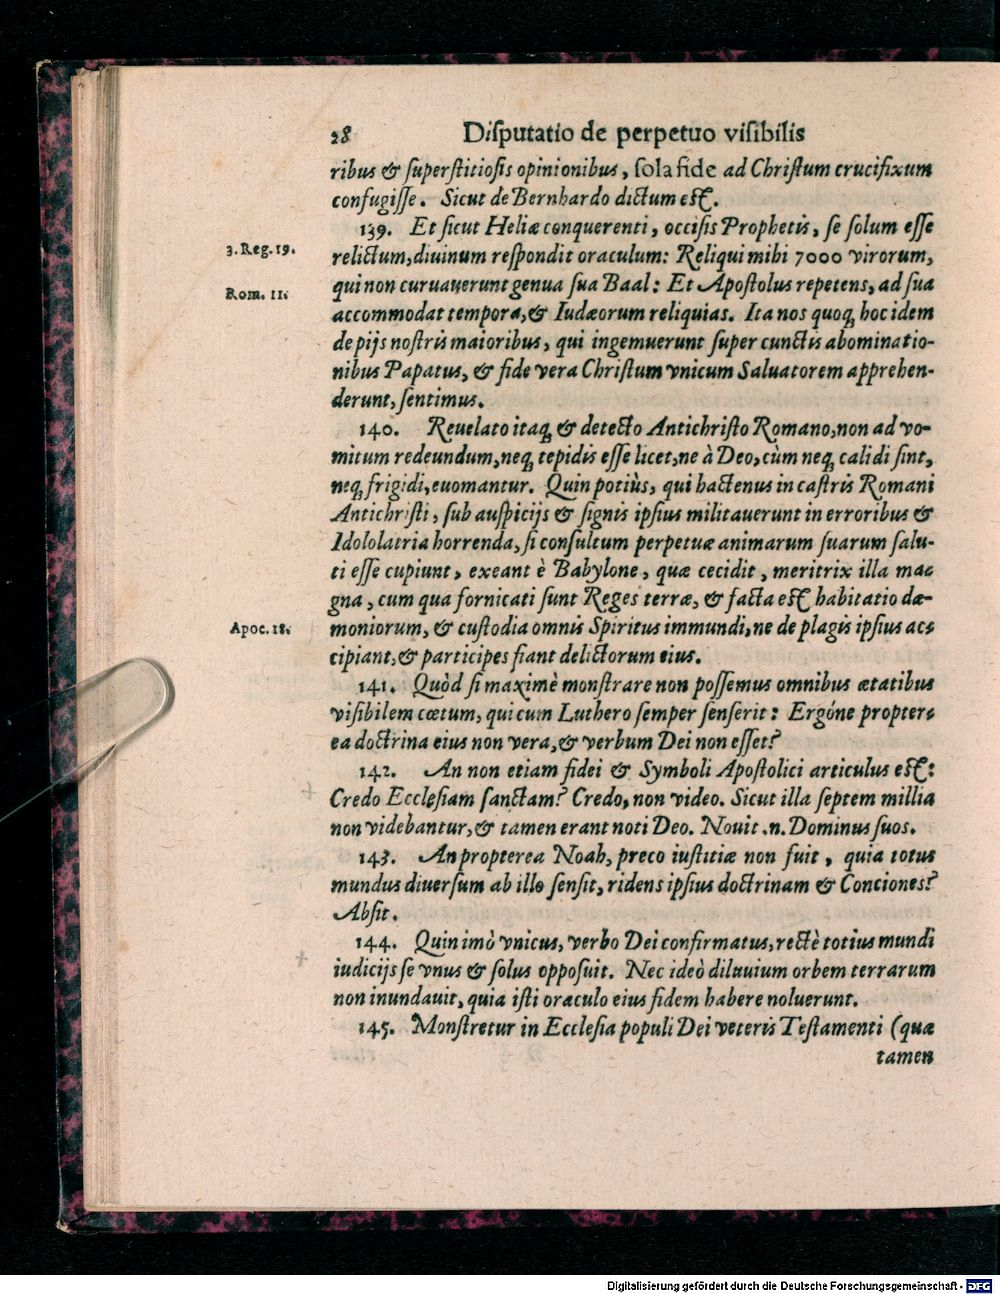 28 Diſputatio de perpetuo viſibilis
ribus & ſuperſtitioſis opinionibus, ſola fide ad Chriſtum crucifixum
confugiſſe. Sicut de Bernhardo dictum eſt.
139. Et ſicut Heliæ conquerenti, occiſis Prophetis, ſe ſolum eſſe
3. Reg. 19. relictum, diuinum reſpondit oraculum: Reliqui mihi 7000 virorum,
Rom. 11. qui non curuauerunt genua ſua Baal: Et Apoſtolus repetens, ad ſua
accommodat tempora, & Iudæorum reliquias. Ita nos quoq; hoc idem
de pijs noſtris maioribus, qui ingemuerunt ſuper cunctis abominatio-
nibus Papatus, & fide vera Chriſtum vnicum Saluatorem apprehen-
derunt, ſentimus.
140. Reuelato itaq; & detecto Antichriſto Romano, non ad vo-
mitum redeundum, neq; tepidis eſſe licet, ne à Deo, cùm neq; calidi ſint,
neq; frigidi, euomantur. Quin potiùs, qui hactenus in caſtris Romani
Antichriſti, ſub auſpicijs & ſignis ipſius militauerunt in erroribus &
Idololatria horrenda, ſi conſultum perpetuæ animarum ſuarum ſalu-
ti eſſe cupiunt, exeant è Babylone, quæ cecidit, meritrix illa ma-
gna, cum qua fornicati ſunt Reges terræ, & facta eſt habitatio dæ-
Apoc. 18. moniorum, & cuſtodia omnis Spiritus immundi, ne de plagis ipſius ac-
cipiant, & participes fiant delictorum eius.
141. Quòd ſi maximè monſtrare non poſſemus omnibus ætatibus
viſibilem cœtum, qui cum Luthero ſemper ſenſerit: Ergóne propter-
ea doctrina eius non vera, & verbum Dei non eſſet?
142. An non etiam fidei & Symboli Apoſtolici articulus eſt:
Credo Eccleſiam ſanctam? Credo, non video. Sicut illa ſeptem millia
non videbantur, & tamen erant noti Deo. Nouit .n. Dominus ſuos.
143. An propterea Noah, preco iuſtitiæ non fuit, quia totus
mundus diuerſum ab illo ſenſit, ridens ipſius doctrinam & Conciones?
Abſit.
144. Quin imò vnicus, verbo Dei confirmatus, rectè totius mundi
iudicijs ſe vnus & ſolus oppoſuit. Nec ideò diluuium orbem terrarum
non inundauit, quia iſti oraculo eius fidem habere noluerunt.
145. Monſtretur in Eccleſia populi Dei veteris Teſtamenti (quæ
tamen
Digitalisierung gefördert durch die Deutsche Forschungsgemeinschaft - DFG